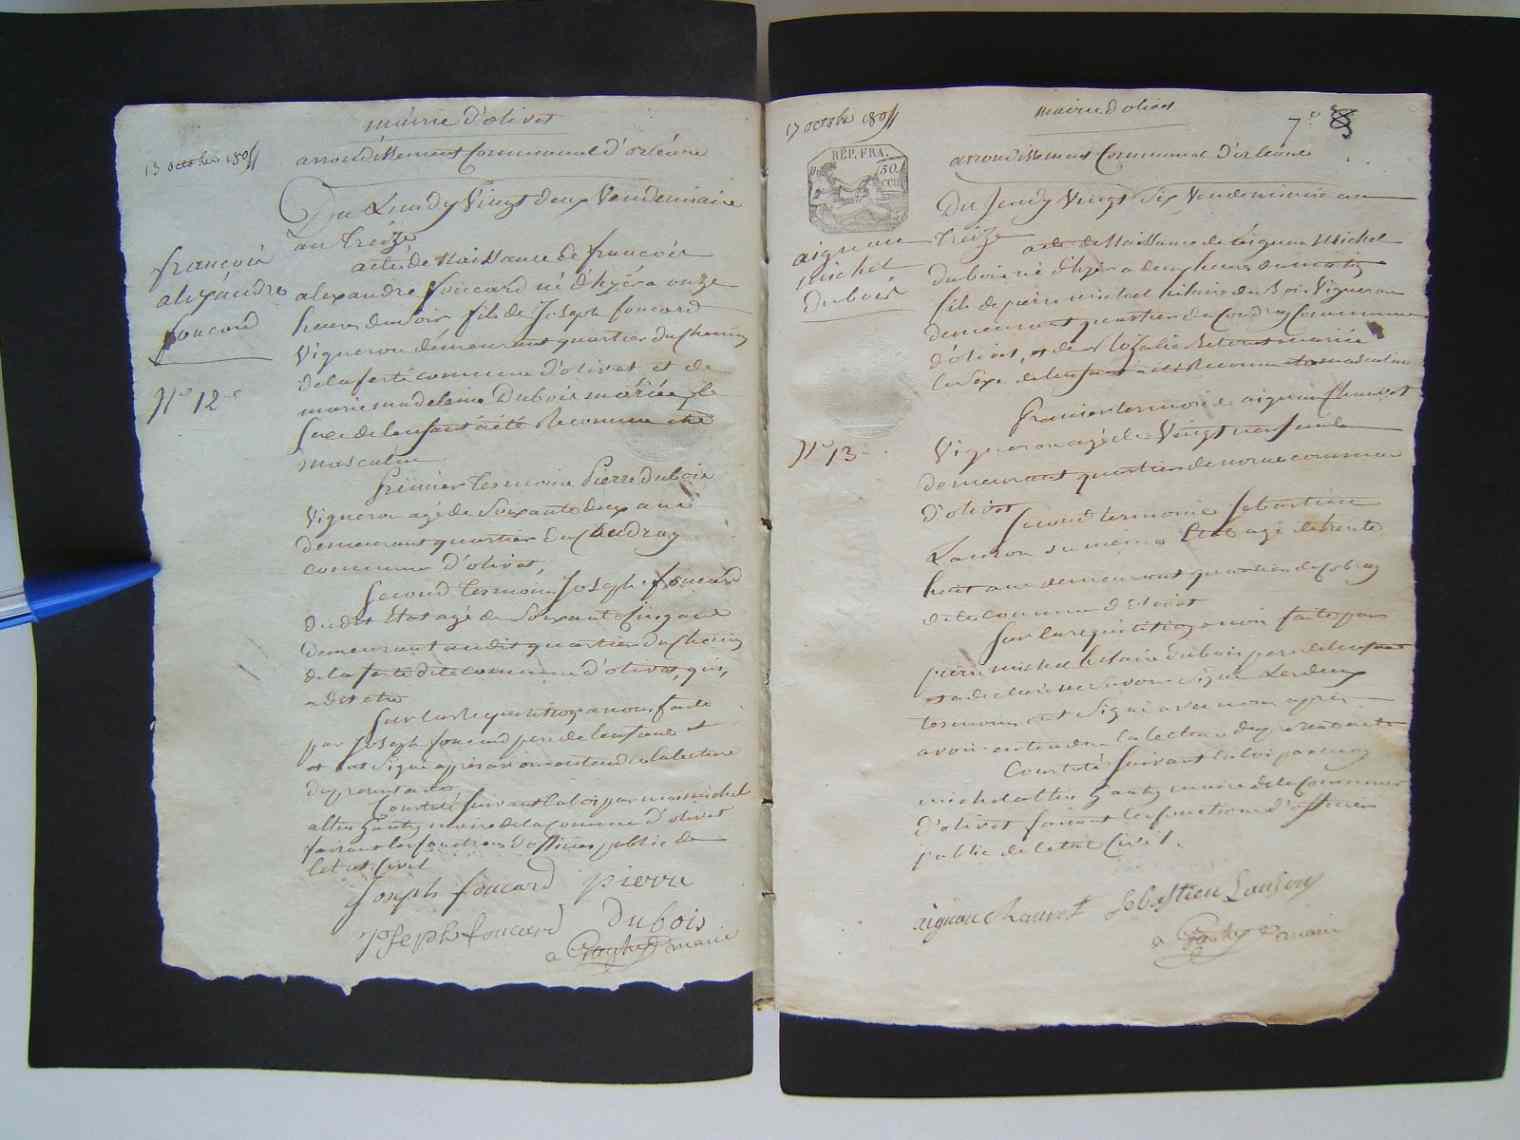 mairie d'olivet
13 octobre 180
arrondissement Communal d'orléans
Du Lundy Vingt deux Vendemiaire
an treize
françois
alexandre
foucard
N° 12
acte de Naissance de françois
alexandre foucard né d'hyér a onze
heures du soir, fils de Joseph foucard
Vigneron demeurant quartier du Chemin
de la ferté commune d'olivet et de
marie madelaine Dubois mariée, le
sexe de lenfant a été Reconnue etre
masculin
premier temoin Pierre dubois
Vigneron agé de Soixante deux ans
demeurant quartier du Caudray
commune d'olivet,
Second temoin Joseph foucard
du dit Etat agé de Soixante Cinq ans
demeurant audit quartier du Chemin
de la ferté dite commune d'olivet, qui,
a dit etre
Sur la Requisition a nous faite
par Joseph foucard pere de lenfant et
et ont Signé apprès avoir entendu la lecture
du present acte
Constaté Suivant la loi par moi michel
maire de la Commune d'olivet
faisant les fonctions d'officier public de
letat Civil
Joseph foucard pierre
Joseph foucard dubois
maire
17 octobre 180
mairie d'olivet
7
RÉP. FRA.
50
cen
arrondissement Communal d'orléans
Du Jeudy Vingt Six Vendemiaire an
treize
aignan
Michel
Dubois
N° 13
acte de Naissance de aignan Michel
dubois né d'hyer a deux heures du matin
fils de pierre michel hilaire du Bois Vigneron
demeurant quartier du Coudray Commune
d'olivet, et de Rosalie mariée
le Sexe de lenfant a été Reconnu etre masculin
premier temoin aignan Chauvet
Vigneron agé de Vingt neuf ans
demeurant quartier de commune
d'olivet
Second temoin Sebastien
Lanson du meme Etat agé de trente
huit ans demeurant quartier du
de la commune d'olivet
Sur la requisition a nous faite par
pierre michel hilaire dubois pere de lenfant
et a declaré ne Savoir Signé Les deux
temoins ont Signé avec nous apprès
avoir entendu la lecture du present acte
Constaté Suivant la loi par moi
michel maire de la Commune
d'olivet faisant les fonctions d'officier
public de letat Civil.
aignan Chauvet Sebastien Lanson
maire